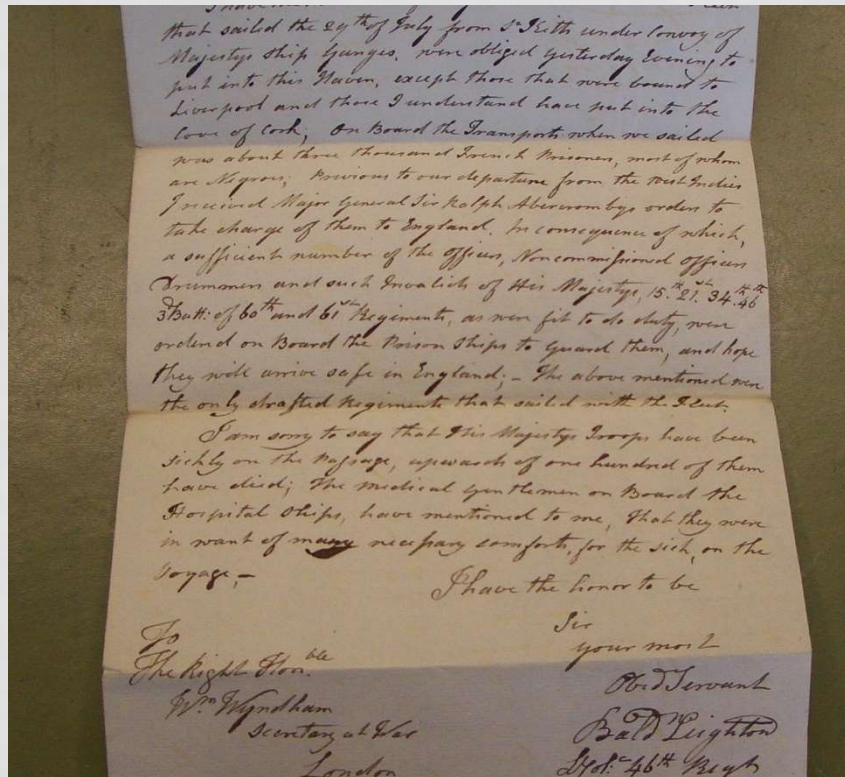 that sailed the 29th of July from St Kitts under Convoy of
Majestys Ship Ganges, were obliged yesterday Evening to
put into this Haven, except those that were bound to
Liverpool and those I understand have put into the
Cove of Cork; On Board the Transports when we sailed
was about three thousand French Prisoners, most of whom
are Negroes; Previous to our departure from the West Indies
I received Major General Sir Ralph Abercrombys orders to
take charge of them to England. In consequence of which,
a sufficient number of the officers, Noncommissioned officers
Drummers and such Invalids of His Majestys, 15th 21st 34th 46th
3d Batt: of 60th and 61st Regiments, as were fit to do duty, were
ordered on Board the Prison Ships to Guard them, and hope
they will arrive safe in England; – The above mentioned were
the only drafted Regiments that sailed with the Fleet.
I am sorry to say that His Majestys Troops have been
sickly on the Passage, upwards of one hundred of them
have died; The Medical Gentlemen on Board the
Hospital Ships, have mentioned to me, That they were
in want of many necessary comforts, for the sick, on the
Voyage, –
I have the honor to be
Sir
Your most
Obed Servant
Bald Leighton
Lt Col: 46th Regt
To
The Right Honble
Wm Wyndham
Secretary at War
London